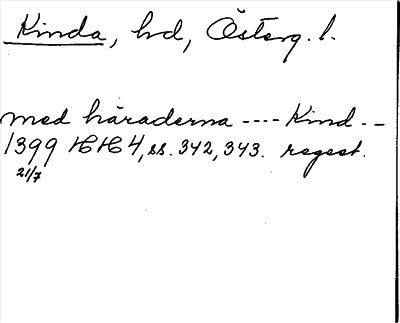 Kinda, hd, Österg. l.
med häraderna ---- Kind --
1399 HH 4, ss. 342, 343. regest.
21/7